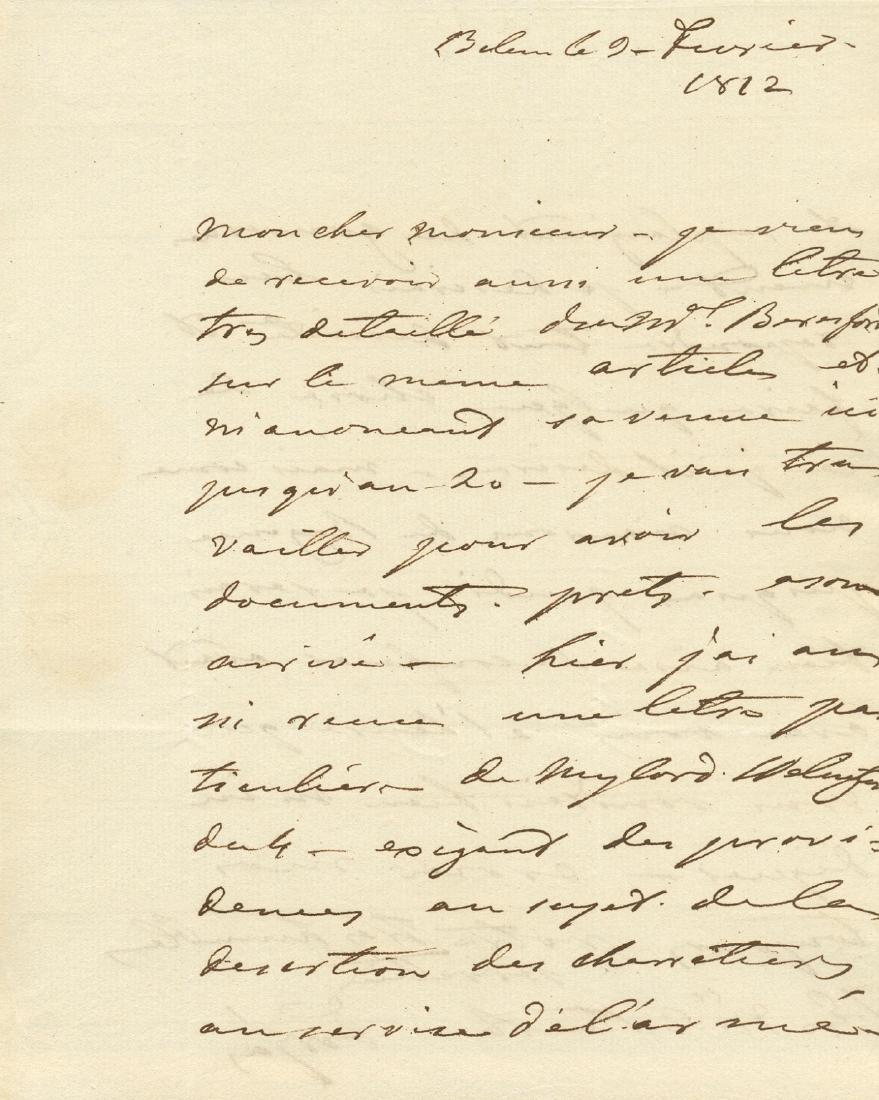 Belem le 9 - Fevrier -
1812
mon cher monsieur - je viens
de recevoir aussi une letre
tres detaillé du M.al Beresfor
sur le meme articles et
m'anonceant sa venue ici
jusqu'au 20 - je vais tra
vailler pour avoir les
documents. prets. a son
arrivé - hier j'ai aus
si receue une letre par
ticulière de Mylord
du 4 - exigeant des provi=
dences au sujet. de la
desertion des charretiers
au servise de l'armé